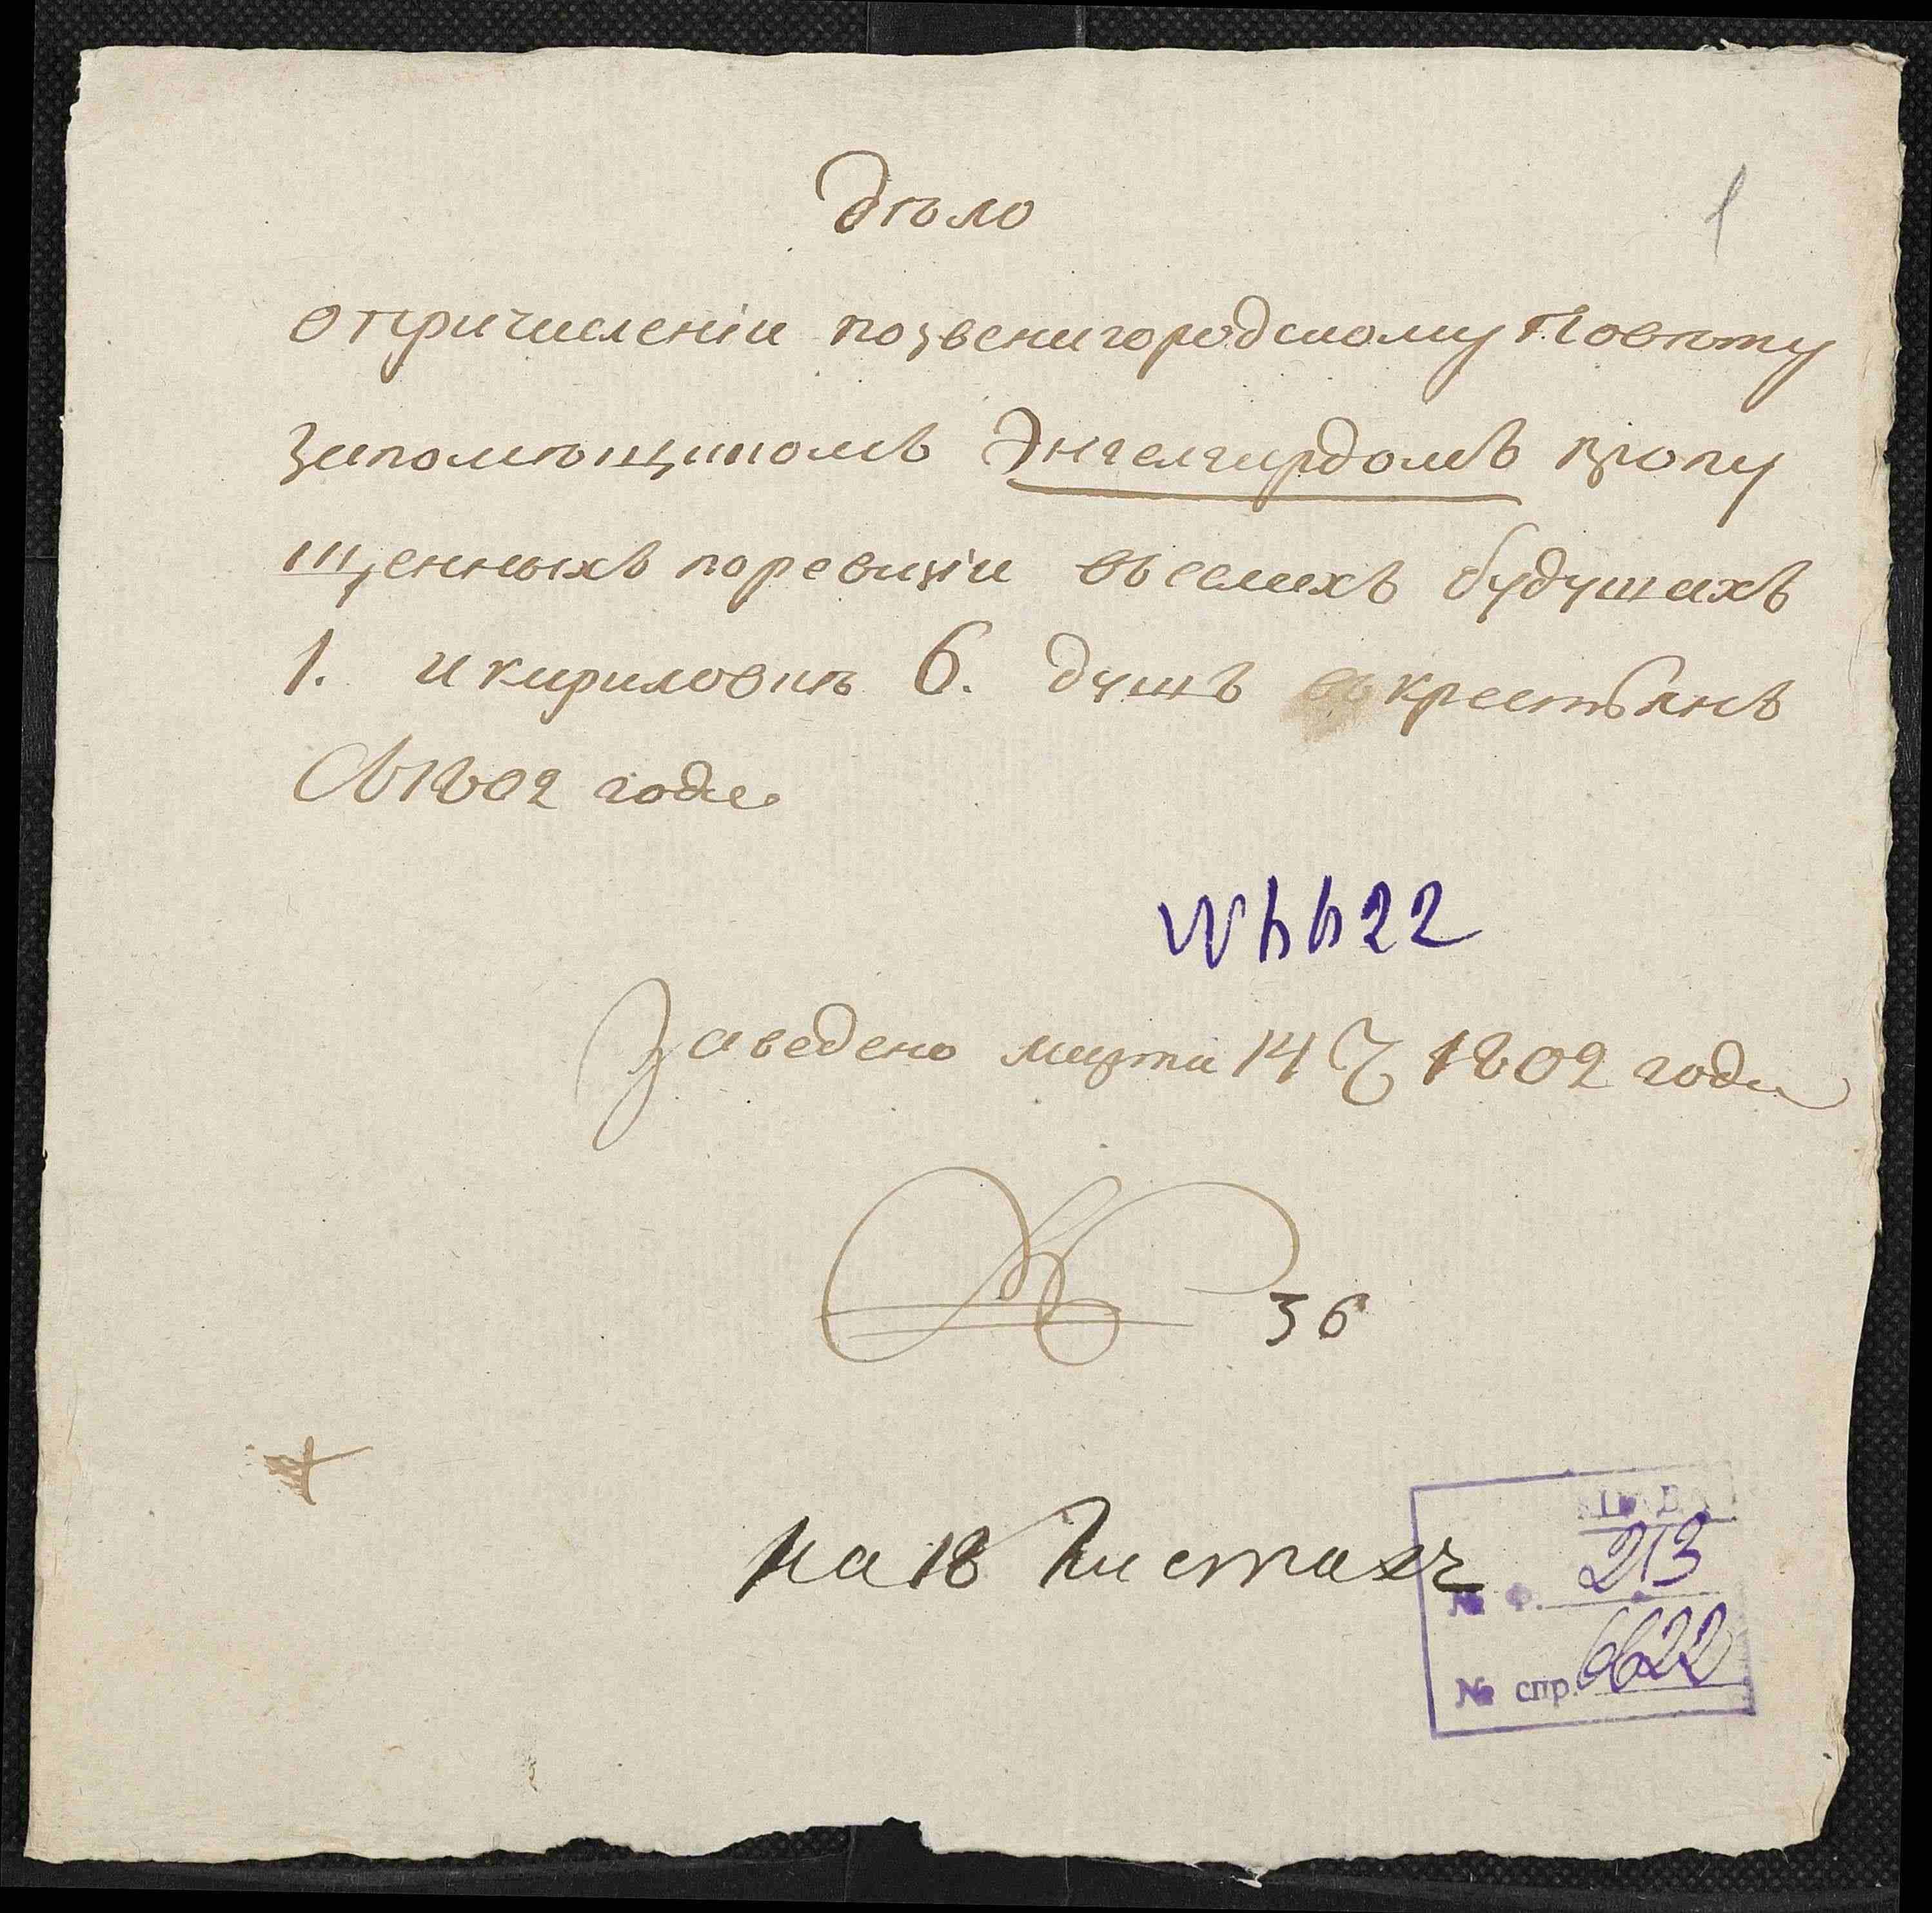 Дѣло
1
о причисленіи по звенигородскому Повѣту
за помѣщикомъ Энгелгардомъ пропу
щенныхъ по ревизіи въ селахъ будищахъ
1. и кириловкѣ 6. душъ крестьянъ
Съ 1802 года
№ 6622
Заведено марта 14 Ч 1802 года
36
на 18 Листахъ
213
№ Ф.
№ спр. 6622